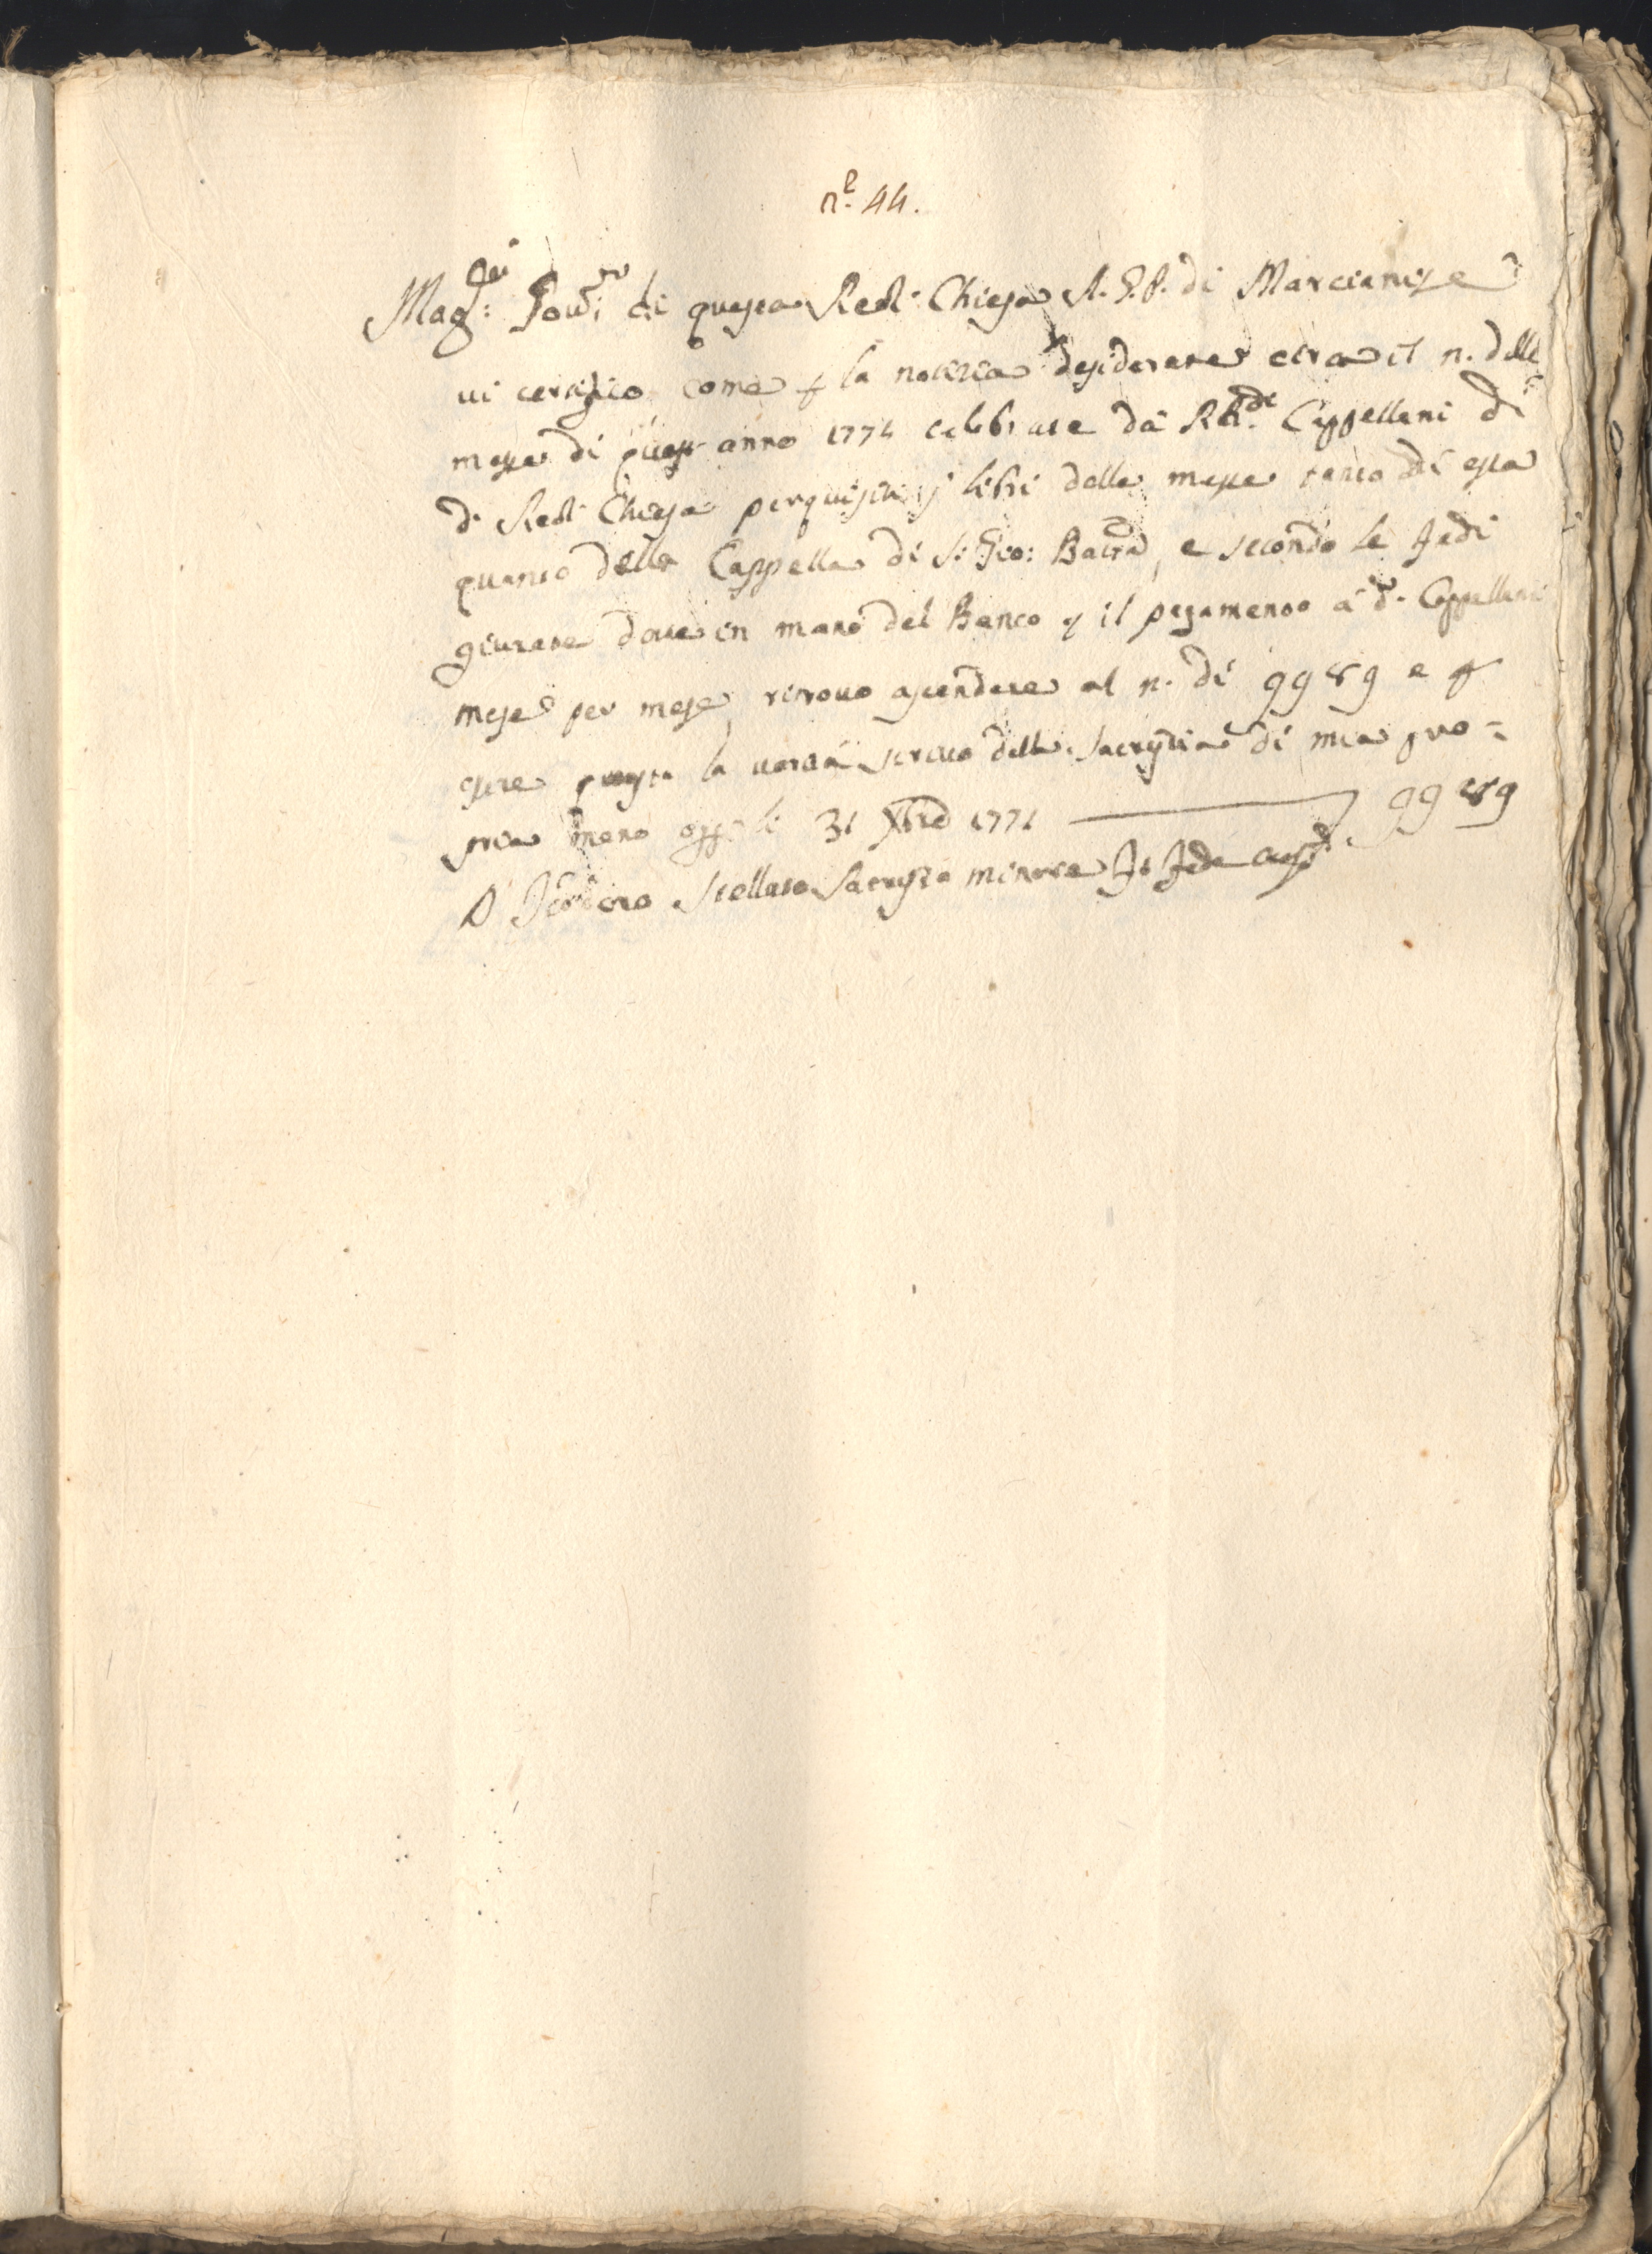 n.e 44.
Mag:ci Gov:ri di questa Real: Chiesa A. G. P. di Marcianise
vi certifico come p la notizia desiderate circa il n. delle
messe di quest anno 1774 celebrate da RR.di Cappellani di
d. Real Chiesa perquisiti i libri delle messe tanto di essa
quanto della Cappella di S: Gio: Batta, e secondo le fedi
giurate date in mano del Banco p il pagamento a d.i Cappellani
mese per mese ritrovo ascendere al n. di 9989 e p
essere questa la verità scritto della sacrystia di mia pro=
pria mano oggi li 31 Xbre 1774 9989
D Isidoro Stellato Sacrysta minore fo fede